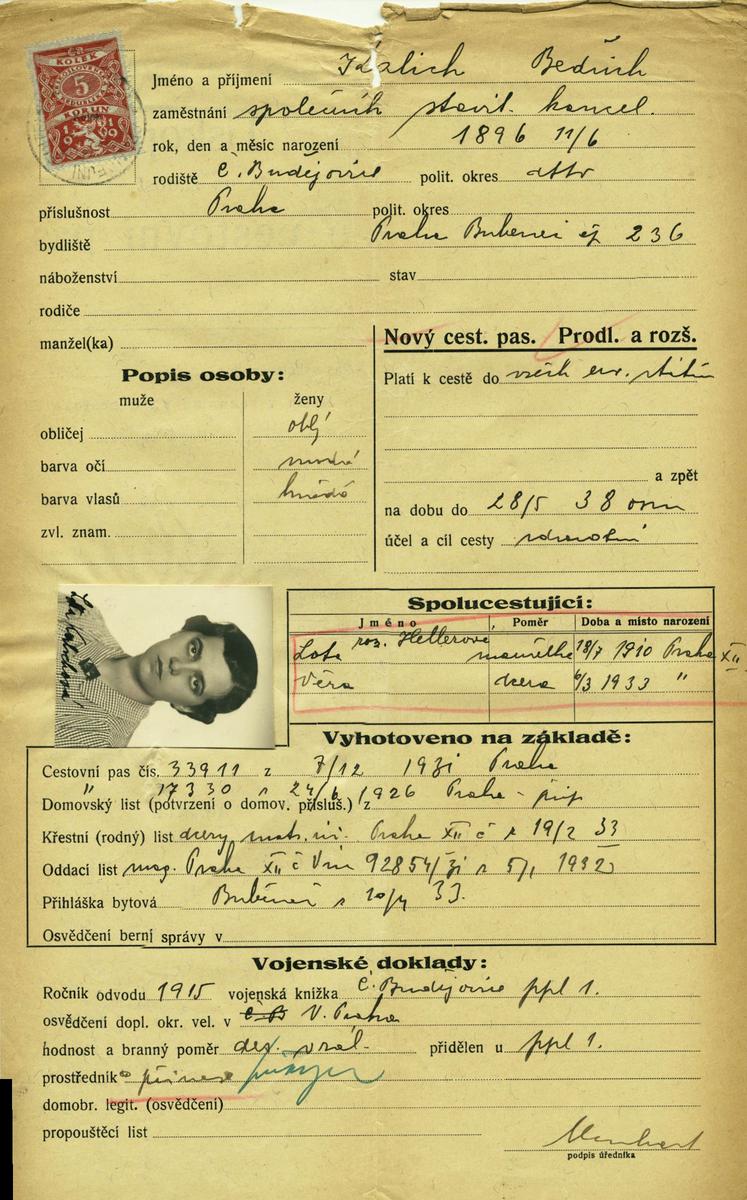 KOLEK
5
KORUN
1919
Jméno a příjmení Bedřich
zaměstnání společník stavit. kancel.
rok, den a měsíc narození 1896 11/6
rodiště Č. Budějovice polit. okres dtto
příslušnost Praha polit. okres
bydliště Praha Bubeneč čp 236
náboženství stav
rodiče
manžel(ka)
Nový cest. pas. Prodl. a rozš.
Popis osoby:
muže ženy
obličej oblý
barva očí modré
barva vlasů hnědé
zvl. znam.
Platí k cestě do všech eur. států
a zpět
na dobu do 28/5 38 osm
účel a cíl cesty zdravotní
Spolucestující:
Jméno Poměr Doba a místo narození
Lota roz. Hellerová manželka 18/7 1910 Praha XII
Věra dcera 6/3 1933 "
Vyhotoveno na základě:
Cestovní pas čís. 33911 z 7/12 1931 Praha
" 17330 " 24/6 1926 Praha
Domovský list (potvrzení o domov. přísluš.) z
Křestní (rodný) list dcery Praha XII č 19/2 33
Oddací list mag. Praha XII č VIII 92854/31 5/1 1932
Přihláška bytová Bubeneč 20/4 33.
Osvědčení berní správy v
Vojenské doklady:
Ročník odvodu 1915 vojenská knížka Č. Budějovice ppl 1.
osvědčení dopl. okr. vel. v V. Praha
hodnost a branný poměr přidělen u ppl 1.
prostředník
domobr. legit. (osvědčení)
propouštěcí list
podpis úředníka